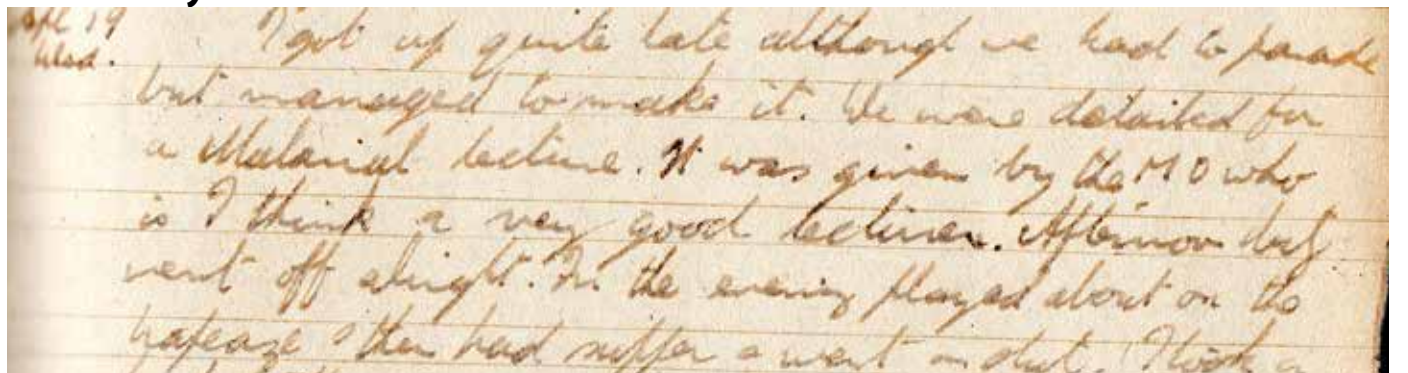 Sept 19 I got up quite late although we had to parade
Wed. but managed to make it. We were detailed for
a Malarial lecture. It was given by the M O who
is I think a very good lecturer. Afternoon duty
went off alright. In the evening played about on the
trapeaze & then had supper & went on shift. I took a